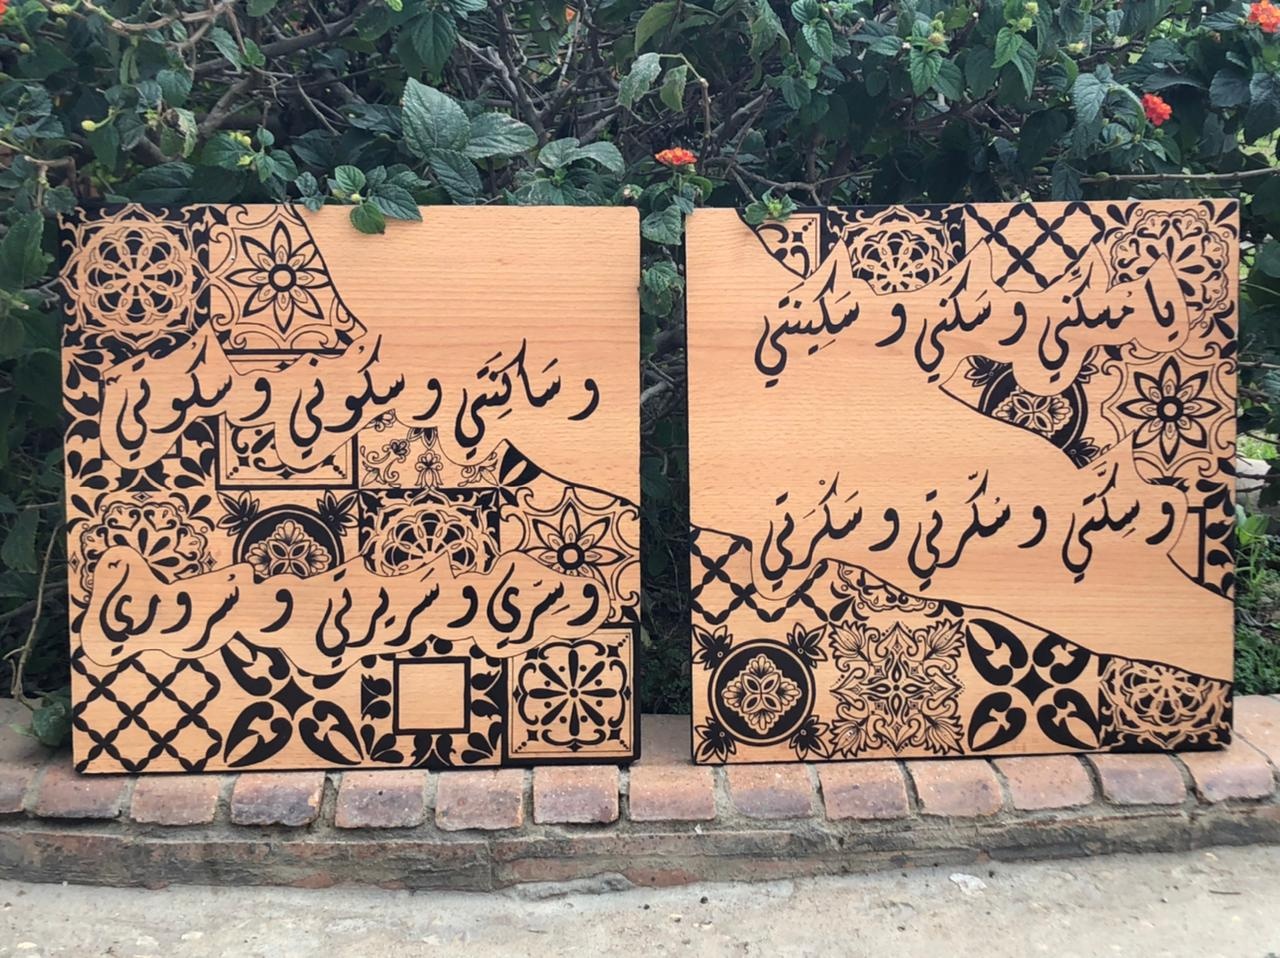 يا مُسكّني و سَكَني و سَكِينتي
و سِكّتي و سُكّرتي و سَكْرَتي
و سَاكِنَتي و سكُوني و سكوتي
و سِرّي و سَريرتي و سُروري